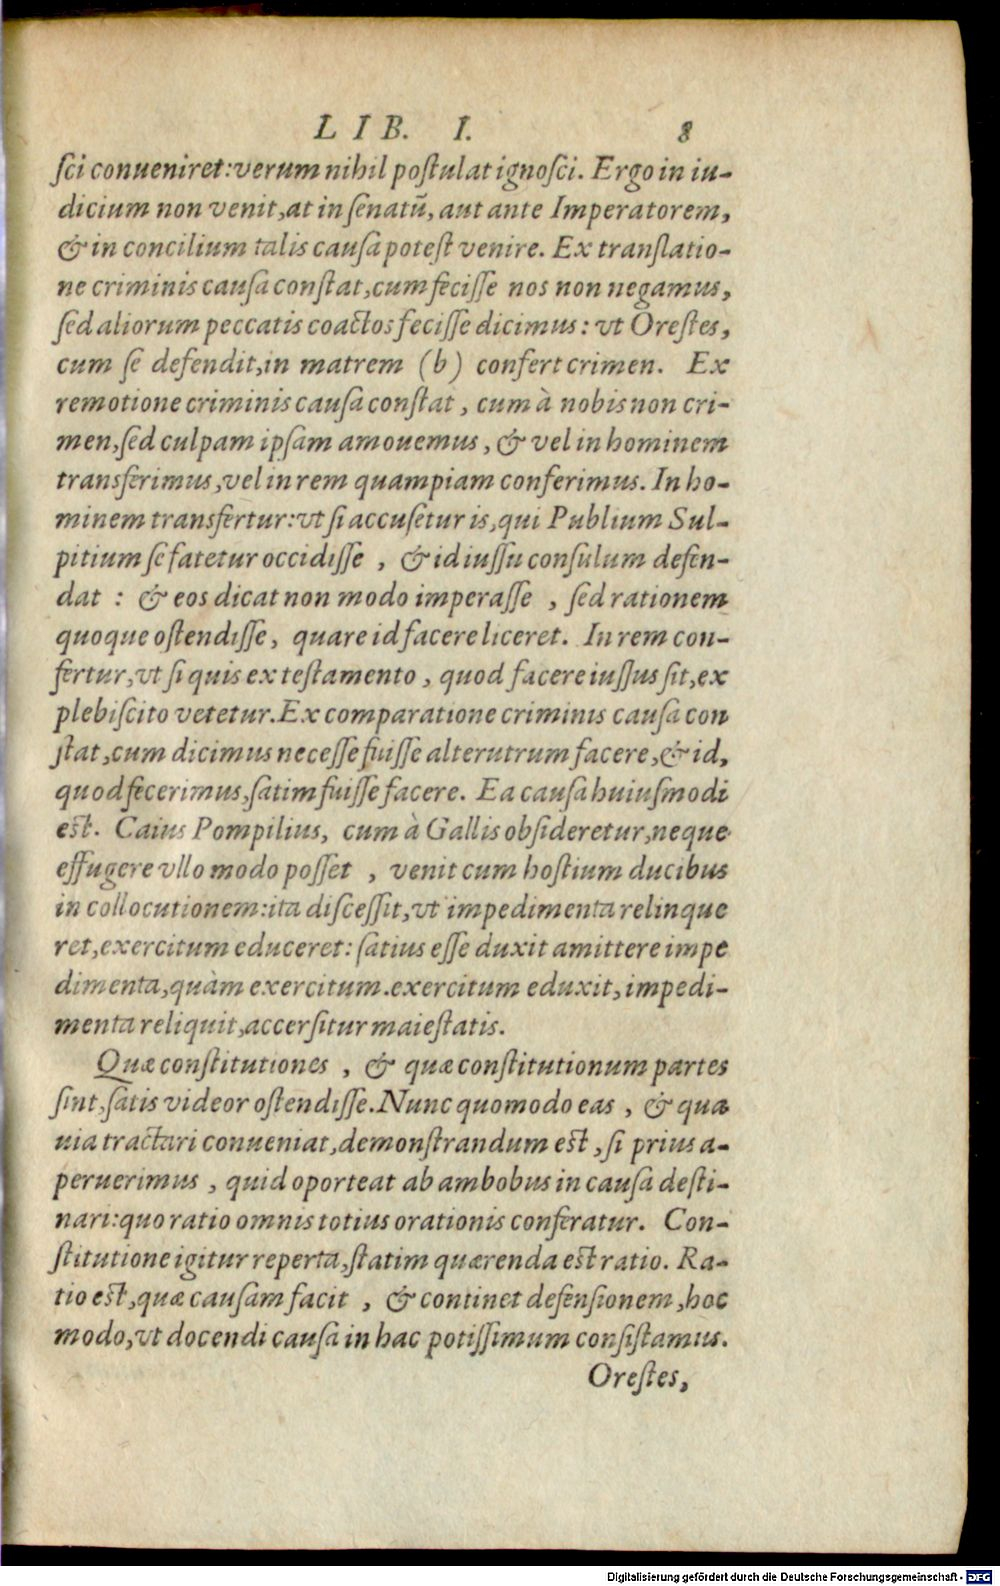 LIB. I. 8
ſci conueniret: verum nihil poſtulat ignoſci. Ergo in iu-
dicium non venit, at in ſenatũ, aut ante Imperatorem,
& in concilium talis cauſa poteſt venire. Ex translatio-
ne criminis cauſa conſtat, cum feciſſe nos non negamus,
ſed aliorum peccatis coactos feciſſe dicimus: vt Oreſtes,
cum ſe defendit, in matrem (b) confert crimen. Ex
remotione criminis cauſa conſtat, cum à nobis non cri-
men, ſed culpam ipſam amouemus, & vel in hominem
transferimus, vel in rem quampiam conferimus. In ho-
minem transfertur: vt ſi accuſetur is, qui Publium Sul-
pitium ſe fatetur occidiſſe, & id iuſſu conſulum defen-
dat: & eos dicat non modo imperaſſe, ſed rationem
quoque oſtendiſſe, quare id facere liceret. In rem con-
fertur, vt ſi quis ex teſtamento, quod facere iuſſus ſit, ex
plebiſcito vetetur. Ex comparatione criminis cauſa con
ſtat, cum dicimus neceſſe fuiſſe alterutrum facere, & id,
quod fecerimus, ſatim fuiſſe facere. Ea cauſa huiuſmodi
eſt. Caius Pompilius, cum à Gallis obſideretur, neque
effugere vllo modo poſſet, venit cum hoſtium ducibus
in collocutionem: ita diſceſſit, vt impedimenta relinque
ret, exercitum educeret: ſatius eſſe duxit amittere impe
dimenta, quàm exercitum. exercitum eduxit, impedi-
menta reliquit, accerſitur maieſtatis.
Quæ conſtitutiones, & quæ conſtitutionum partes
ſint, ſatis videor oſtendiſſe. Nunc quomodo eas, & qua
uia tractari conueniat, demonſtrandum eſt, ſi prius a-
peruerimus, quid oporteat ab ambobus in cauſa deſti-
nari: quo ratio omnis totius orationis conferatur. Con-
ſtitutione igitur reperta, ſtatim quærenda eſt ratio. Ra-
tio eſt, quæ cauſam facit, & continet defenſionem, hoc
modo, vt docendi cauſa in hac potiſſimum conſiſtamus.
Oreſtes,
Digitalisierung gefördert durch die Deutsche Forschungsgemeinschaft - DFG